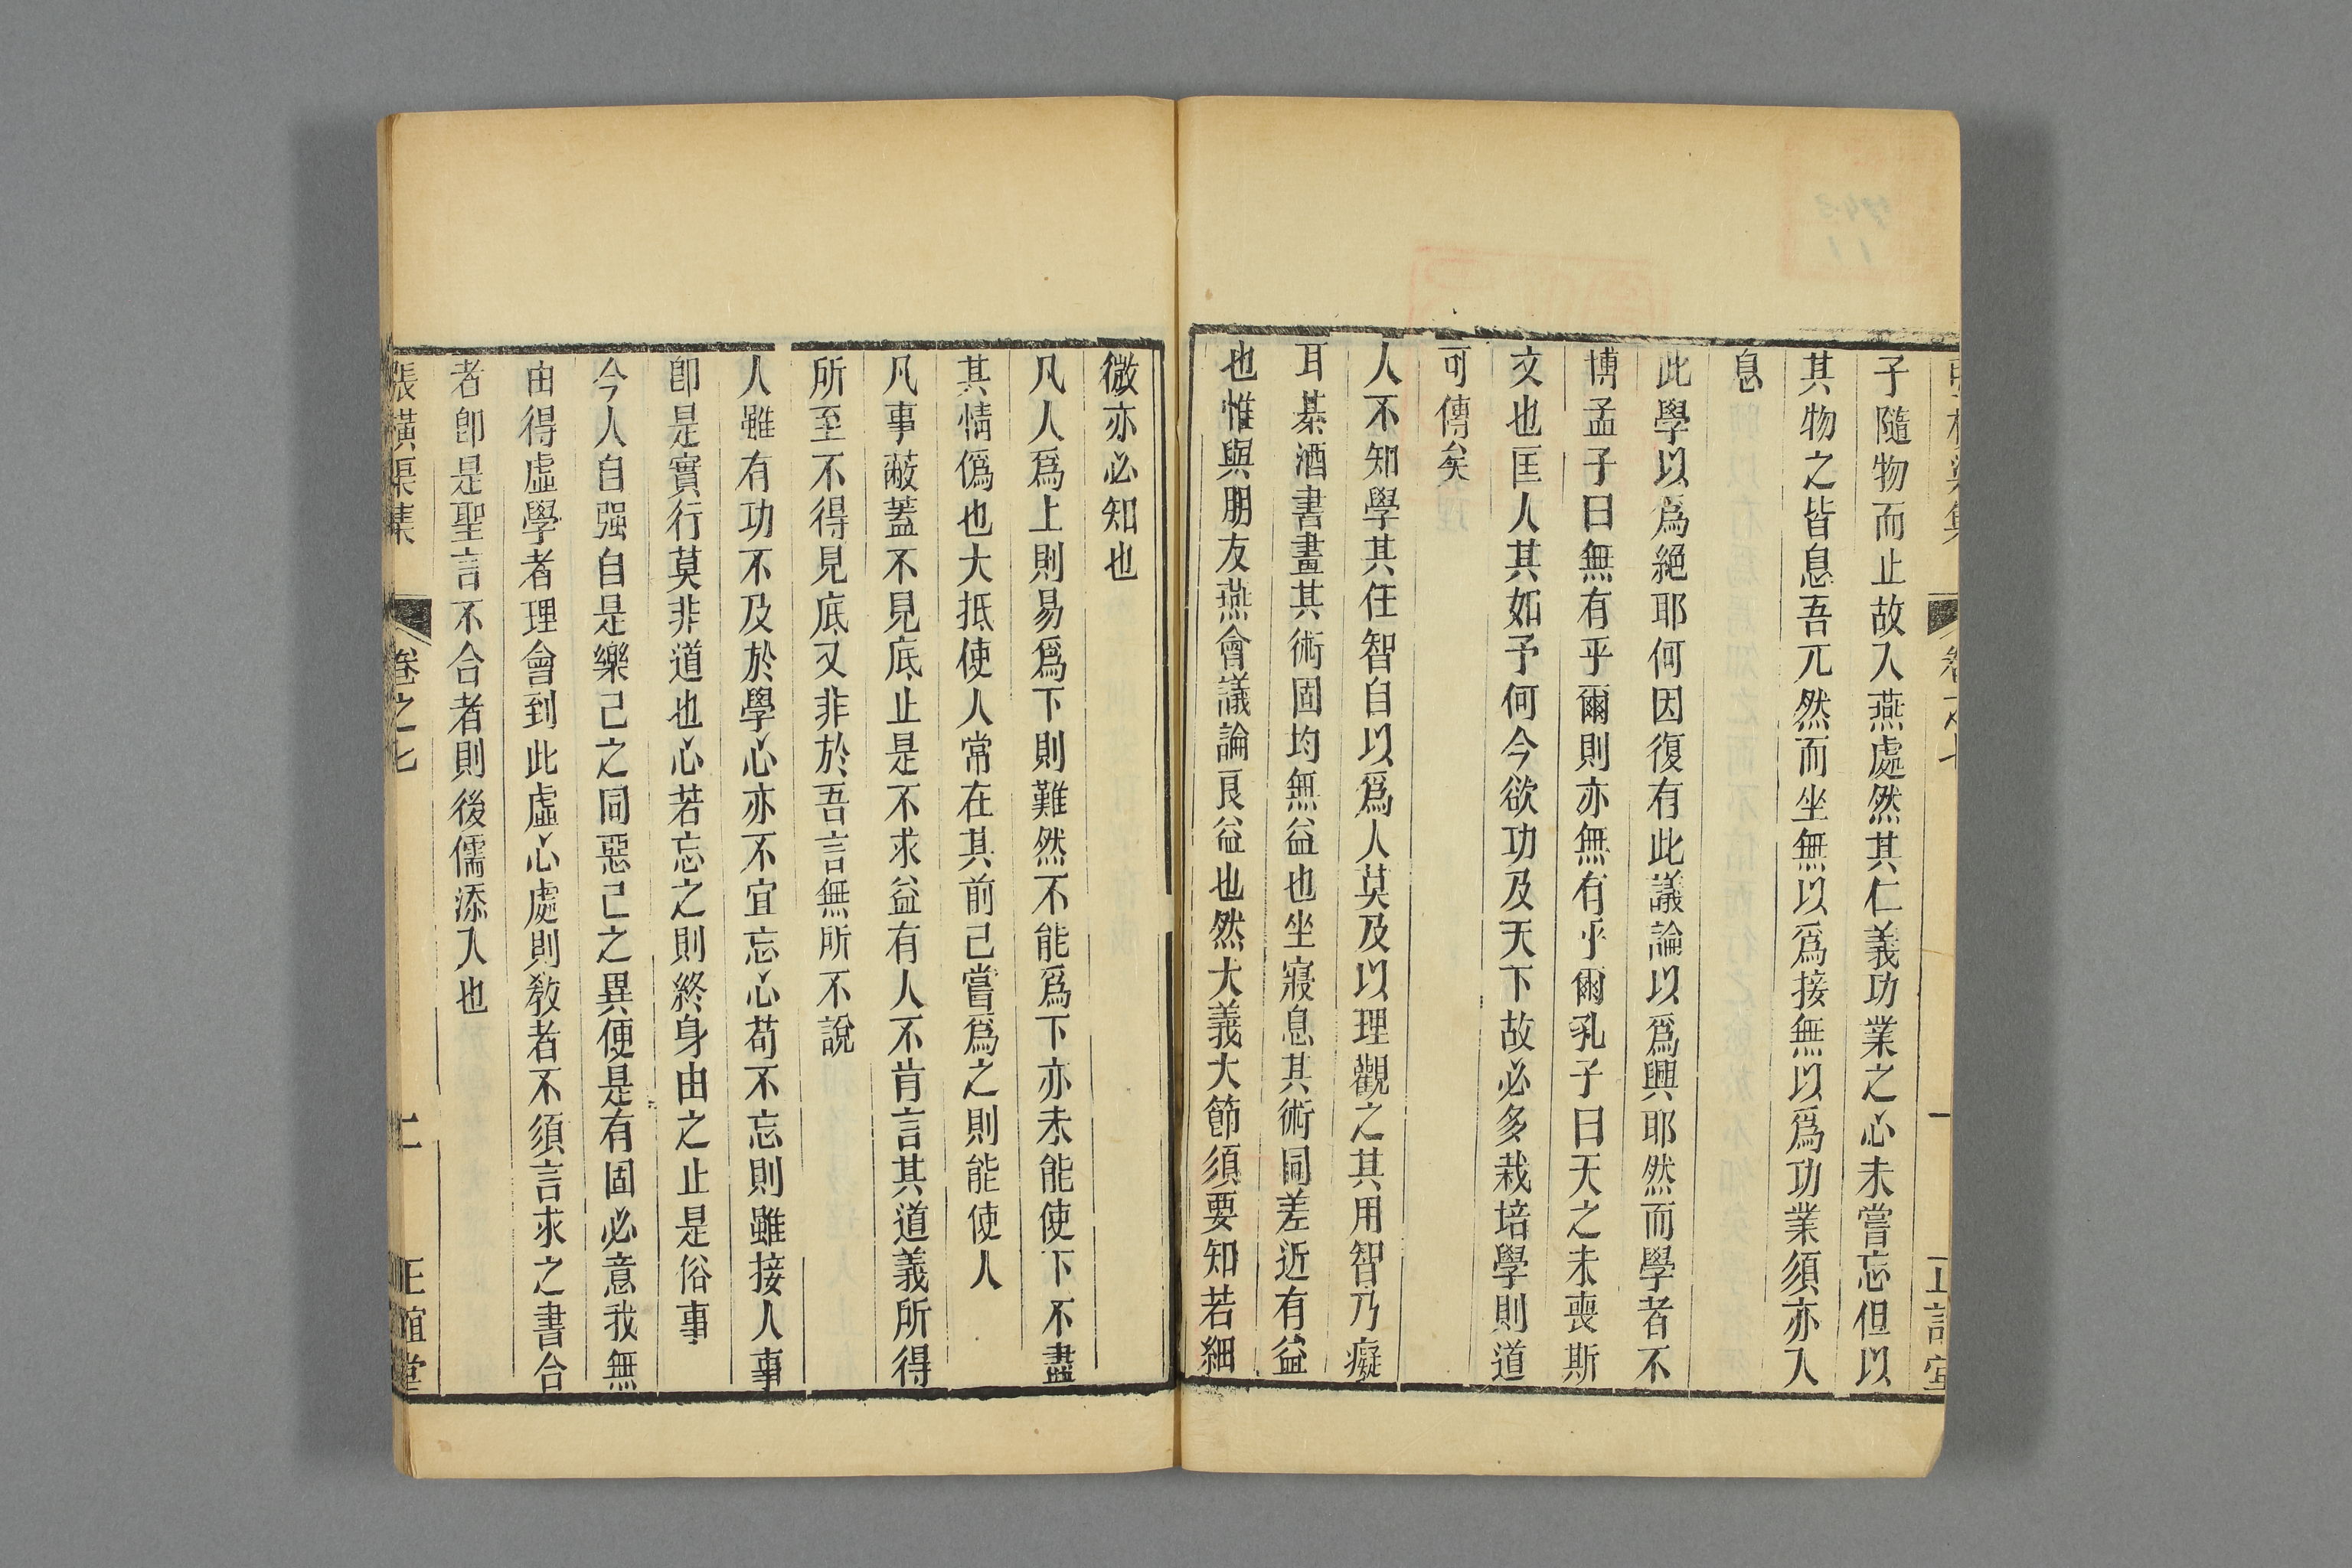 子隨物而止故入燕處然其仁義功業之心未嘗忘但以
其物之皆息吾兀然而坐無以爲接無以爲功業須亦入
息
此學以爲絕耶何因復有此議論以爲興耶然而學者不
博孟子曰無有乎爾則亦無有乎爾孔子曰天之未喪斯
文也匡人其如予何今欲功及天下故必多栽培學則道
可傳矣
人不知學其任智自以爲人莫及以理觀之其用智乃癡
耳棊酒書畫其術固均無益也坐寢息其術同差近有益
也惟與朋友燕會議論良益也然大義大節須要知若細
微亦必知也
凡人爲上則易爲下則難然不能爲下亦未能使下不盡
其情僞也大抵使人常在其前己嘗爲之則能使人
凡事蔽蓋不見底止是不求益有人不肯言其道義所得
所至不得見底又非於吾言無所不說
人雖有功不及於學心亦不宜忘心苟不忘則雖接人事
卽是實行莫非道也心若忘之則終身由之止是俗事
今人自强自是樂己之同惡己之異便是有固必意我無
由得虛學者理會到此虛心處則敎者不須言求之書合
者卽是聖言不合者則後儒添入也
張橫渠集 卷之七 二 正誼堂